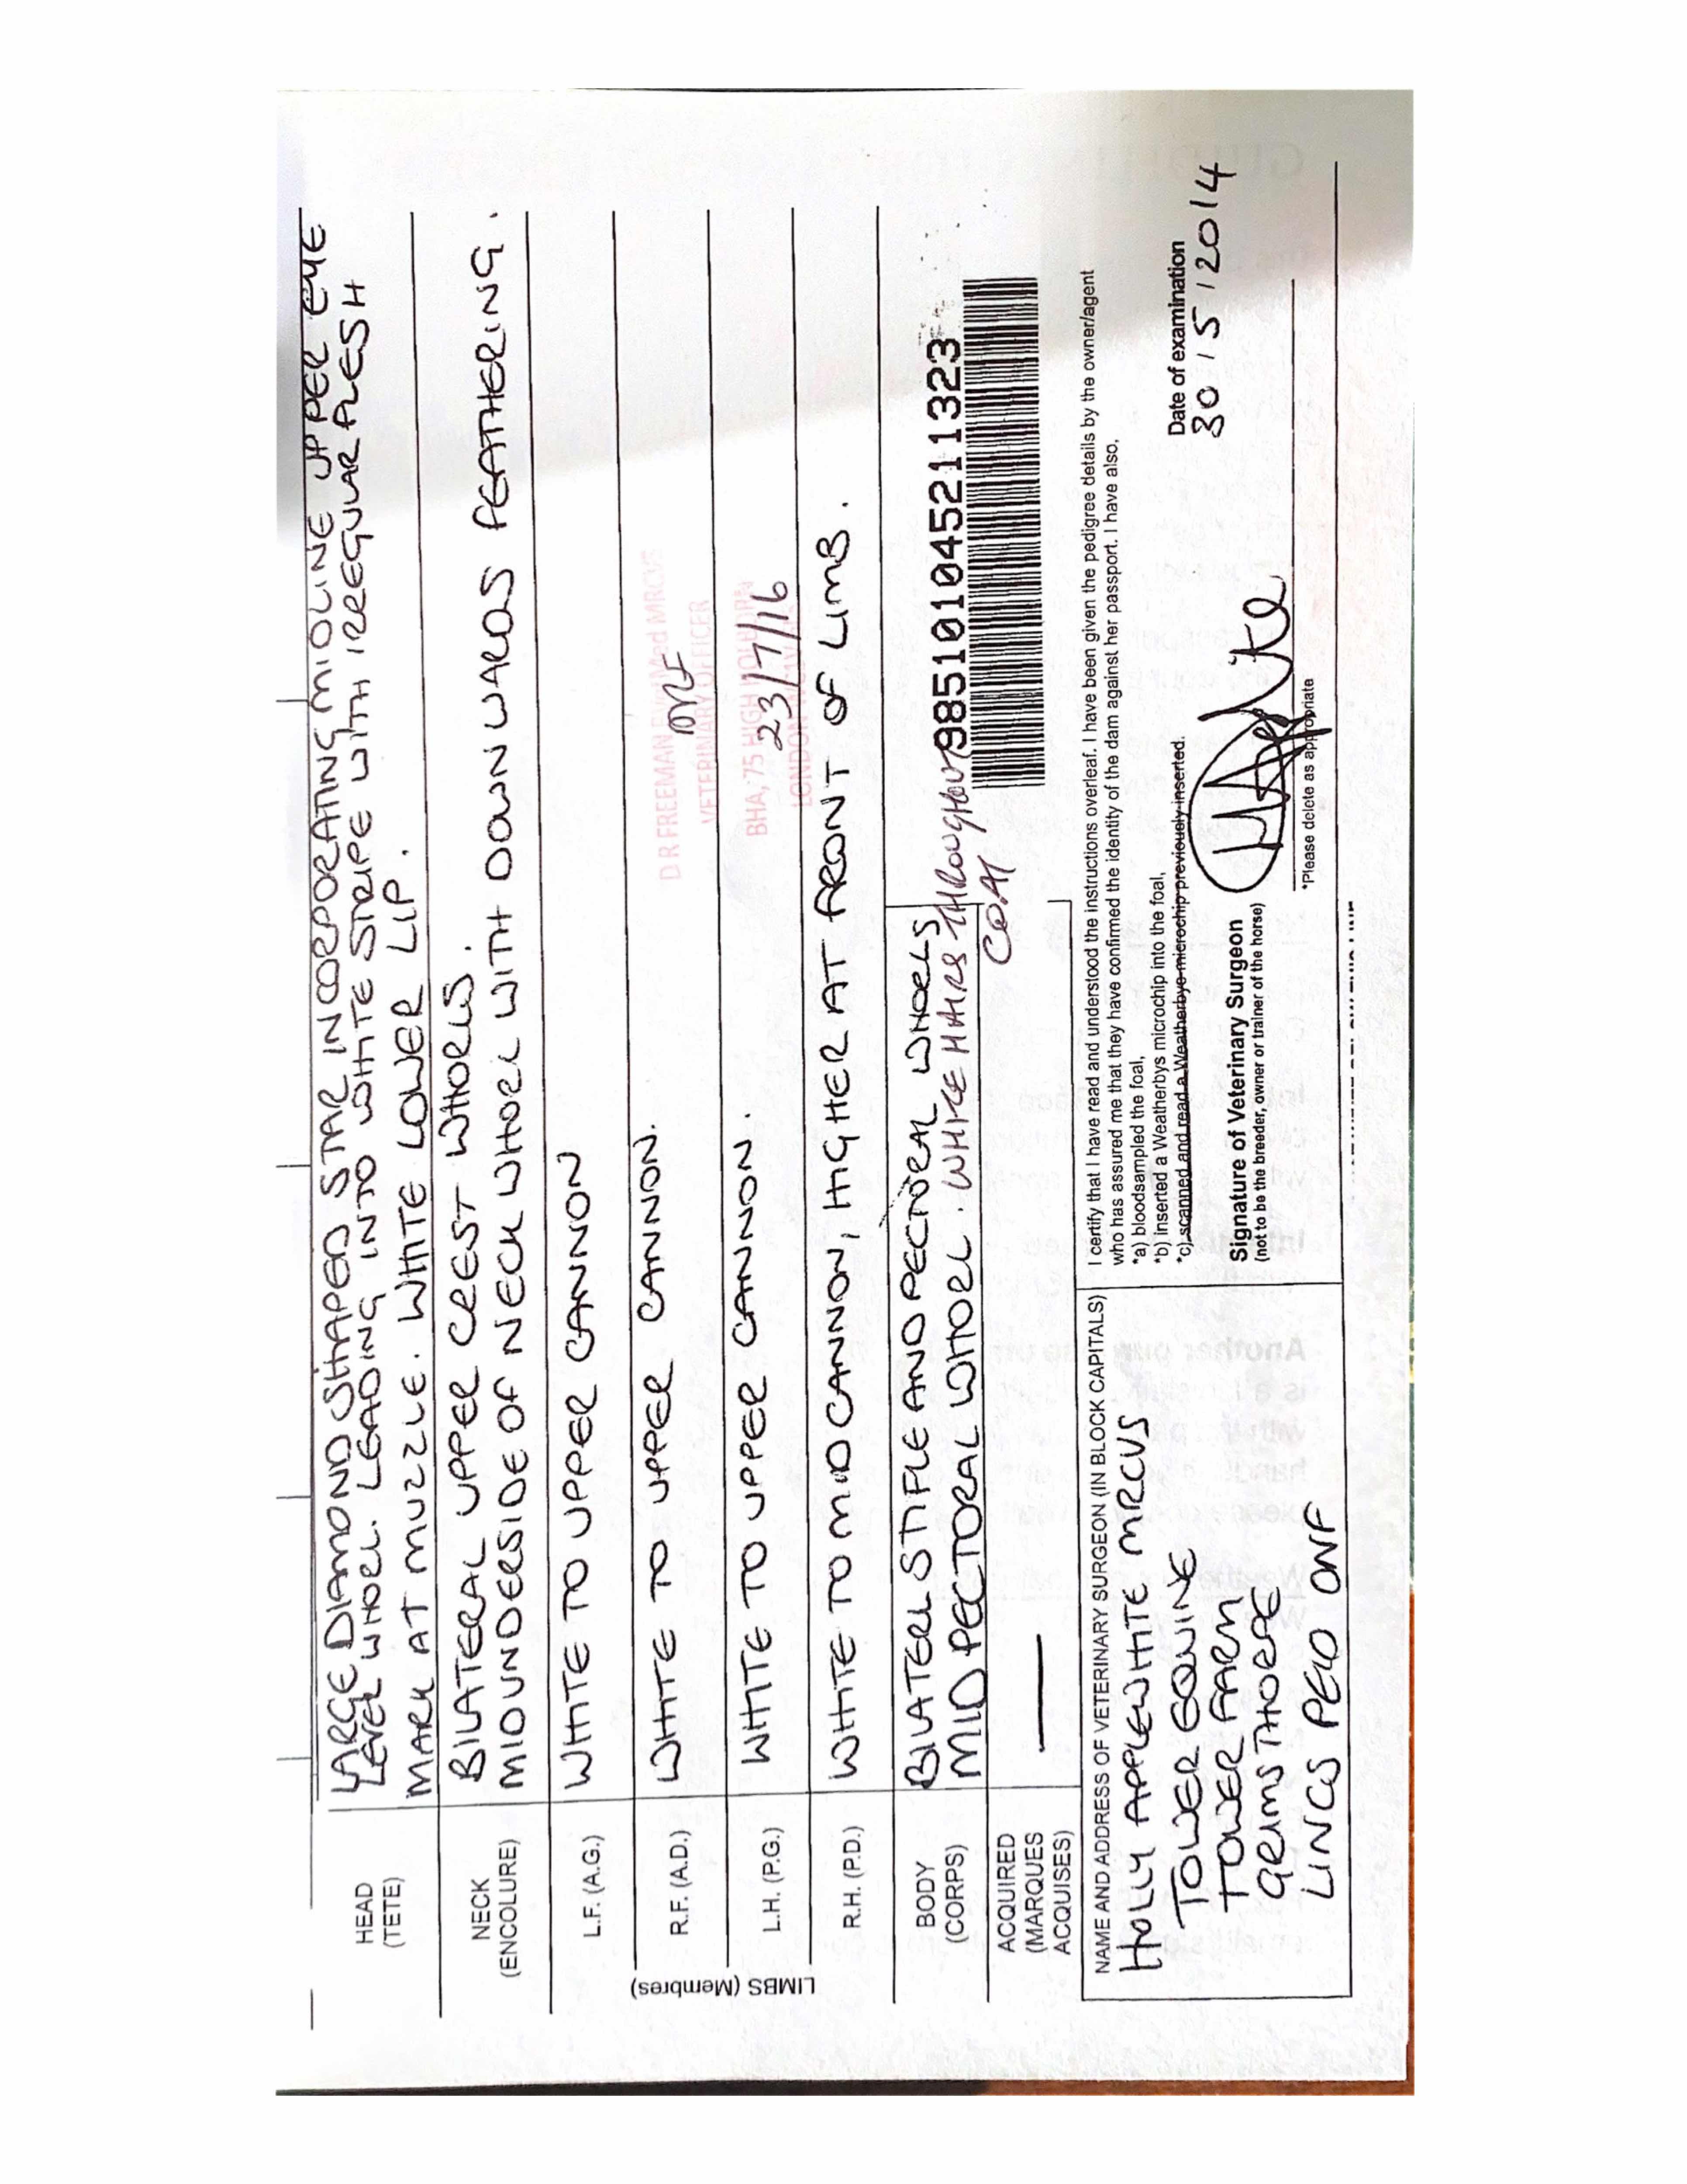 LARGE DIAMOND SHAPED STAR INCORPORATING MIDLINE UPPER EYE
LEVEL WHORL. LEADING INTO WHITE STRIPE WITH IRREGULAR FLESH
MARK AT MUZZLE. WHITE LOWER LIP.
HEAD
(TETE)
BILATERAL UPPER CREST WHORLS.
MIDUNDERSIDE OF NECK WHORL WITH DOWNWARDS FEATHERING.
NECK
(ENCOLURE)
LIMBS (Membres)
L.F. (A.G.)
WHITE TO UPPER CANNON
R.F. (A.D.)
WHITE TO UPPER CANNON.
D R FREEMAN MRCVS
VETERINARY OFFICER
DRF
L.H. (P.G.)
WHITE TO UPPER CANNON.
BHA, 75 HIGH HOLBORN
LONDON
23/7/16
R.H. (P.D.)
WHITE TO MID CANNON, HIGHER AT FRONT OF LIMB.
BODY
(CORPS)
BILATERL STIFLE AND PECTORAL WHORLS
MID PECTORAL WHORL. WHITE HAIRS THROUGHOUT
COAT
985101045211323
ACQUIRED
(MARQUES
ACQUISES)
NAME AND ADDRESS OF VETERINARY SURGEON (IN BLOCK CAPITALS)
HOLLY APPLEWHITE MRCVS
TOWER EQUINE
TOWER FARM
GRIMSTHORPE
LINCS PE10 0NF
I certify that I have read and understood the instructions overleaf. I have been given the pedigree details by the owner/agent
who has assured me that they have confirmed the identity of the dam against her passport. I have also,
*a) bloodsampled the foal,
*b) inserted a Weatherbys microchip into the foal,
*c) scanned and read a Weatherbys microchip previously inserted.
Signature of Veterinary Surgeon
(not to be the breeder, owner or trainer of the horse)
*Please delete as appropriate
Date of examination
30 / 5 / 2014